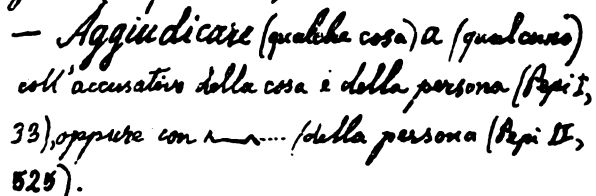 — Aggiudicare (qualche cosa) a (qualcuno)
coll'accusativo della cosa e della persona (Pepi I,
33), oppure con .... /della persona (Pepi II,
525).